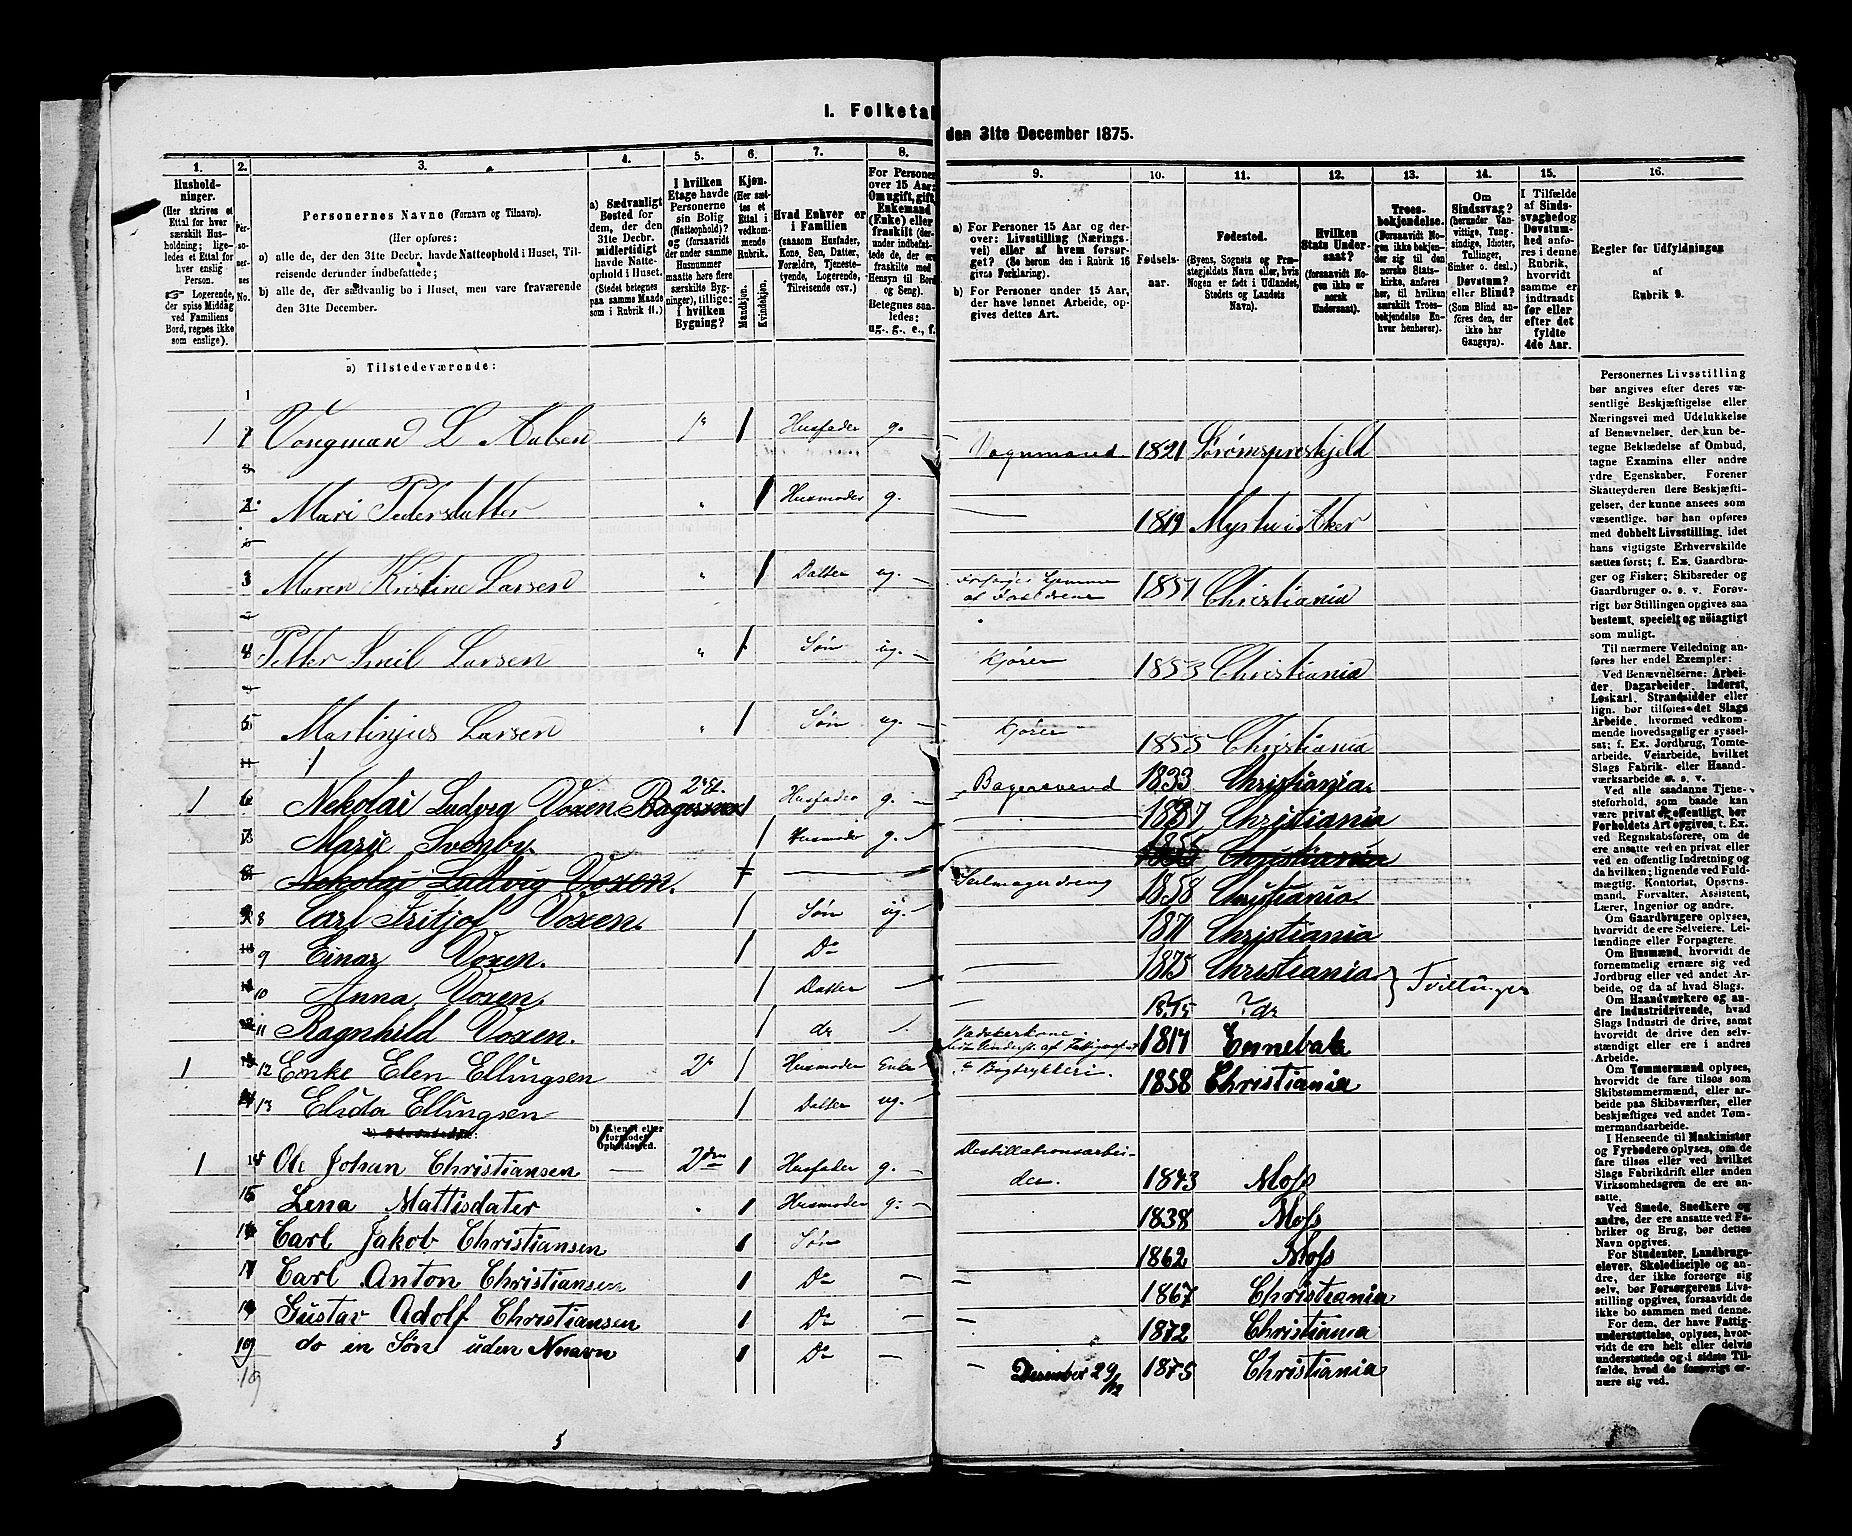 I. Folketal
den 31te December 1875.
1.
Husholdninger.
(Her skrives et Ettal for hver særskilt Husholdning; ligeledes et Ettal for hver enslig Person.
☞ Logerende, der spise Middag ved Familiens Bord, regnes ikke som enslige).
2.
Personernes No.
3.
Personernes Navne (Fornavn og Tilnavn).
(Her opføres:
a) alle de, der den 31te Decbr. havde Natteophold i Huset, Tilreisende derunder indbefattede;
b) alle de, der sædvanlig bo i Huset, men vare fraværende den 31te December.
4.
a) Sædvanligt Bosted for dem, der den 31te Decbr. midlertidigt havde Natteophold i Huset. (Stedet betegnes paa samme Maade som i Rubrik 11.)
5.
I hvilken Etage havde Personerne sin Bolig (Natteophold)? og (forsaavidt der under samme Husnummer maatte høre flere særskilte Bygninger), tillige: i hvilken Bygning?
6.
Kjøn.
(Her sættes et Ettal i vedkommende Rubrik.
Mandkjøn.
Kvindekjøn.
7.
Hvad Enhver er i Familien
(saasom Husfader, Kone, Søn, Datter, Forældre, Tjenestetyende, Logerende, Tilreisende osv.)
8.
For Personer over 15 Aar: Om ugift, gift, Enkemand (Enke) eller fraskilt
Betegnes saaledes:
ug., g., e., f.
9.
a) For Personer 15 Aar og derover: Livsstilling (Næringsvei) eller af hvem forsørget? (Se herom den i Rubrik 16 givne Forklaring).
b) For Personer under 15 Aar, der have lønnet Arbeide, opgives dettes Art.
10.
Fødselsaar.
11.
Fødested.
(Byens, Sognets og Præstegjeldets Navn eller, hvis Nogen er født i Udlandet, Stedets og Landets Navn).
12.
Hvilken Stats Undersaat?
(forsaavidt Nogen ikke er norsk Undersaat).
13.
Troesbekjendelse.
(Forsaavidt Nogen ikke bekjender sig til den norske Statskirke, anføres her, til hvilken særskilt Troesbekjendelse Enhver henhører).
14.
Om Sindssvag?
(herunder Vanvittige, Tungsindige, Idioter, Tullinger, Sinker o. desl.)
Døvstum?
eller Blind?
(Som Blind anføres den, der ikke har Gangsyn).
15.
I Tilfælde af Sindssvaghed og Døvstumhed anføres i denne Rubrik, hvorvidt samme er indtraadt før eller efter det fyldte 4de Aar.
16.
Regler for Udfyldningen
af
Rubrik 9.
a) Tilstedeværende:
1 1 Vongmand L Aulsen 1ste 1 Husfader g. Vognmand 1821 Sørømspreskjeld
2 Mari Pedersdatter " 1 Husmoder g. — 1819 i Aker
3 Maren Kristine Larsen " 1 Datter ug. af Forældrene 1851 Christiania
4 Petter Emil Larsen " 1 Søn ug. Kjører 1853 Christiania
5 Martinjus Larsen " 1 Søn ug. Kjører 1855 Christiania
1 6 Nekolai Ludvig Voxen Bagersvend 2 Et. 1 Husfader g. Bagersvend 1833 Christiania
7 Marie Svenby 1 Husmoder g. — 1837 Christiania
8 Nekolai Ludvig Voxen. Christiania
8 Carl Fritjof Voxen. 1 Søn ug. Seilmagerdreng 1858 Christiania
9 Einar Voxen. 1 Do — 1871 Christiania
10 Anna Voxen. 1 Datter — 1875 Christiania } Tvillinger
11 Ragnhild Voxen. 1 do — 1875 do
1 12 Enke Elen Ellingsen 2 1 Husmoder Enke Vadskerkone 1817 Ennebak
13 Elida Ellingsen 1 Datter ug. Bogtrykkeri 1858 Christiania
b) Kjendt eller formodet Opholdssted.
1 14 Ole Johan Christiansen — 2den 1 Husfader g. Destillationsarbeider. 1843 Moss
15 Lena Mattisdater " 1 Husmoder g. 1838 Moss
16 Carl Jakob Christiansen 1 Søn 1862 Moss
17 Carl Anton Christiansen 1 Do — 1867 Christiania
Gustav Adolf Christiansen 1 Do — 1872 Christiania
do en Søn uden Nnavn 1 Do — December 29/12 1875 Christiania
19
5
Personernes Livsstilling bør angives efter deres væsentlige Beskjæftigelse eller Næringsvei med Udelukkelse af Benævnelser, der kun betegne Beklædelse af Ombud, tagne Examina eller andre ydre Egenskaber. Forener Skatteyderen flere Beskjæftigelser, der kunne ansees som væsentlige, bør han opføres med dobbelt Livsstilling, idet hans vigtigste Erhvervskilde sættes først; f. Ex. Gaardbruger og Fisker; Skibsreder og Gaardbruger o. s. v. Forøvrigt bør Stillingen opgives saa bestemt, specielt og nøiagtigt som muligt.
Til nærmere Veiledning anføres her endel Exempler:
Ved Benævnelserne: Arbeider, Dagarbeider, Inderst, Løskarl, Strandsidder eller lign. bør tilføies det Slags Arbeide, hvormed vedkommende hovedsagelig er sysselsat; f. Ex. Jordbrug, Tomtearbeide, Veiarbeide, hvilket Slags Fabrik- eller Haandværksarbeide o. s. v.
Ved alle saadanne Tjenesteforhold, som baade kan være privat og offentligt, bør Forholdets Art opgives, f. Ex. ved Regnskabsførere, om de ere ansatte ved en privat eller ved en offentlig Indretning og da hvilken; lignende ved Fuldmægtig, Kontorist, Opsynsmand, Forvalter, Assistent, Lærer, Ingeniør og andre.
Om Gaardbrugere oplyses, hvorvidt de ere Selveiere, Leilændinge eller Forpagtere.
Om Husmænd, hvorvidt de fornemmelig ernære sig ved Jordbrug eller ved andet Arbeide, og da af hvad Slags.
Om Haandværkere og andre Industridrivende, hvad Slags Industri de drive, samt hvorvidt de drive den selvstændigt eller ere i andres Arbeide.
Om Tømmermænd oplyses, hvorvidt de fare tilsøs som Skibstømmermænd, eller arbeide paa Skibsværfter, eller beskjæftiges ved andet Tømmermandsarbeide.
I Henseende til Maskinister og Fyrbødere oplyses, om de fare tilsøs eller ved hvilket Slags Fabrikdrift eller anden Virksomhedsgren de ere ansatte.
Ved Smede, Snedkere og andre, der ere ansatte ved Fabriker og Brug, bør dettes Navn opgives.
For Studenter, Landbrugselever, Skoledisciple og andre, der ikke forsørge sig selv, bør Forsørgerens Livsstilling opgives, forsaavidt de ikke bo sammen med denne.
For dem, der have Fattigunderstøttelse, oplyses, hvorvidt de ere helt eller delvis understøttede og i sidste Tilfælde, hvad de forøvrigt ernære sig ved.